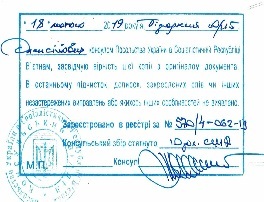 18 лютого 2019 року
консулом Посольства України в Соціалістичній Республіці
В'єтнам, засвідчую вірність цієї копії з оригіналом документа.
В останньому підчисток, дописок, закреслених слів чи інших
незастережених виправлень або яких-юсь інших особливостей не виявлено.
Зареєстровано в реєстрі за № 520/4-062-19
Консульський збір стягнуто
М.П.
Консул